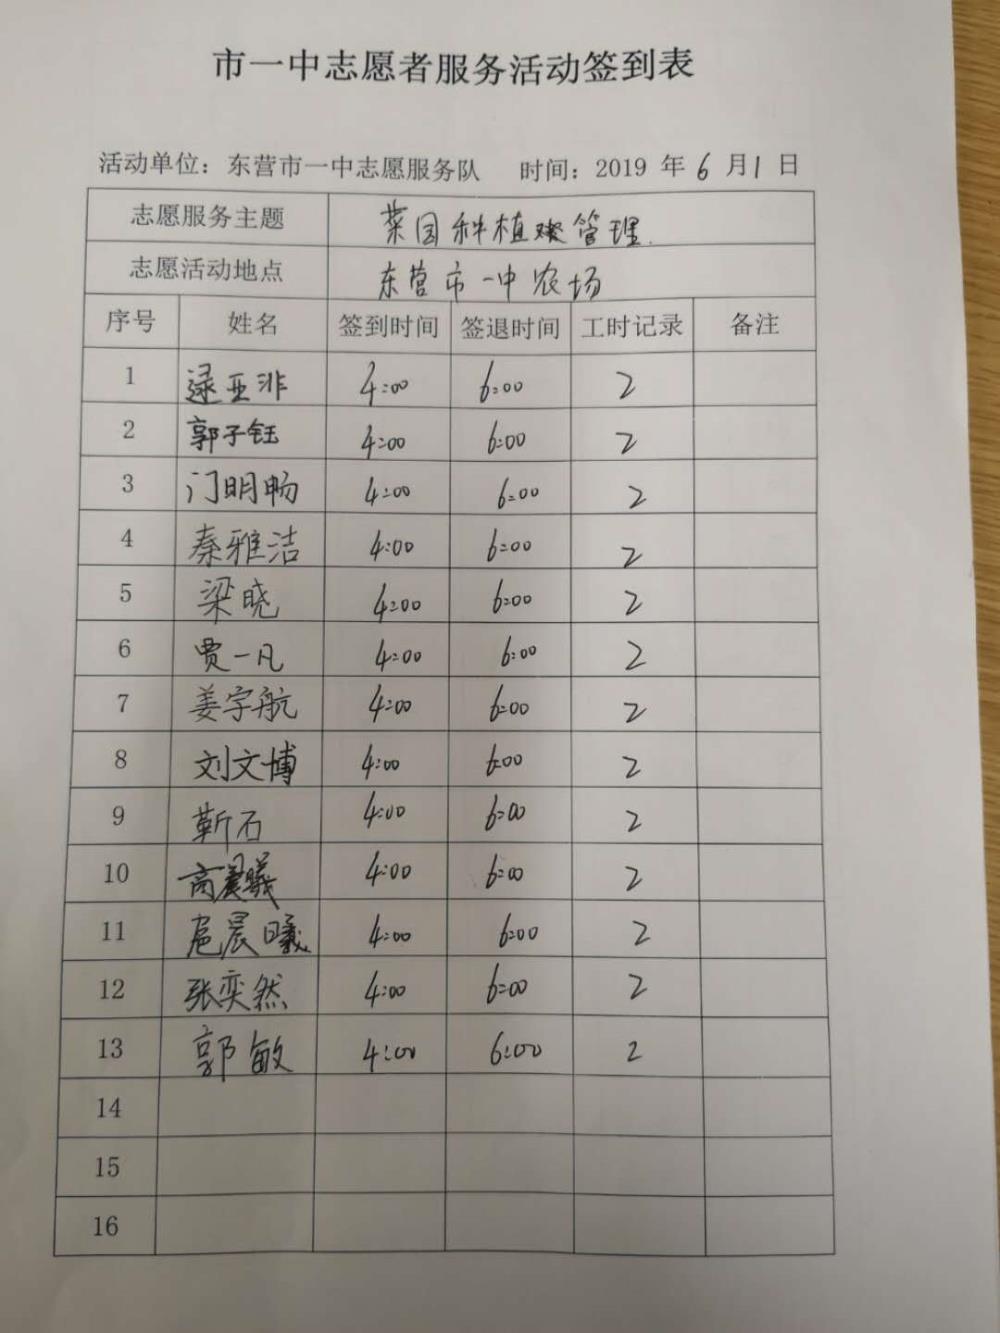 市一中志愿者服务活动签到表
活动单位：东营市一中志愿服务队 时间：2019 年 6 月 1 日
志愿服务主题 菜园种植 管理
志愿活动地点 东营市一中农场
序号 姓名 签到时间 签退时间 工时记录 备注
1 逯亚非 4:00 6:00 2
2 郭子钰 4:00 6:00 2
3 门明畅 4:00 6:00 2
4 秦雅洁 4:00 6:00 2
5 梁晓 4:00 6:00 2
6 贾一凡 4:00 6:00 2
7 姜宇航 4:00 6:00 2
8 刘文博 4:00 6:00 2
9 靳石 4:00 6:00 2
10 高晨曦 4:00 6:00 2
11 扈晨曦 4:00 6:00 2
12 张奕然 4:00 6:00 2
13 郭敏 4:00 6:00 2
14
15
16